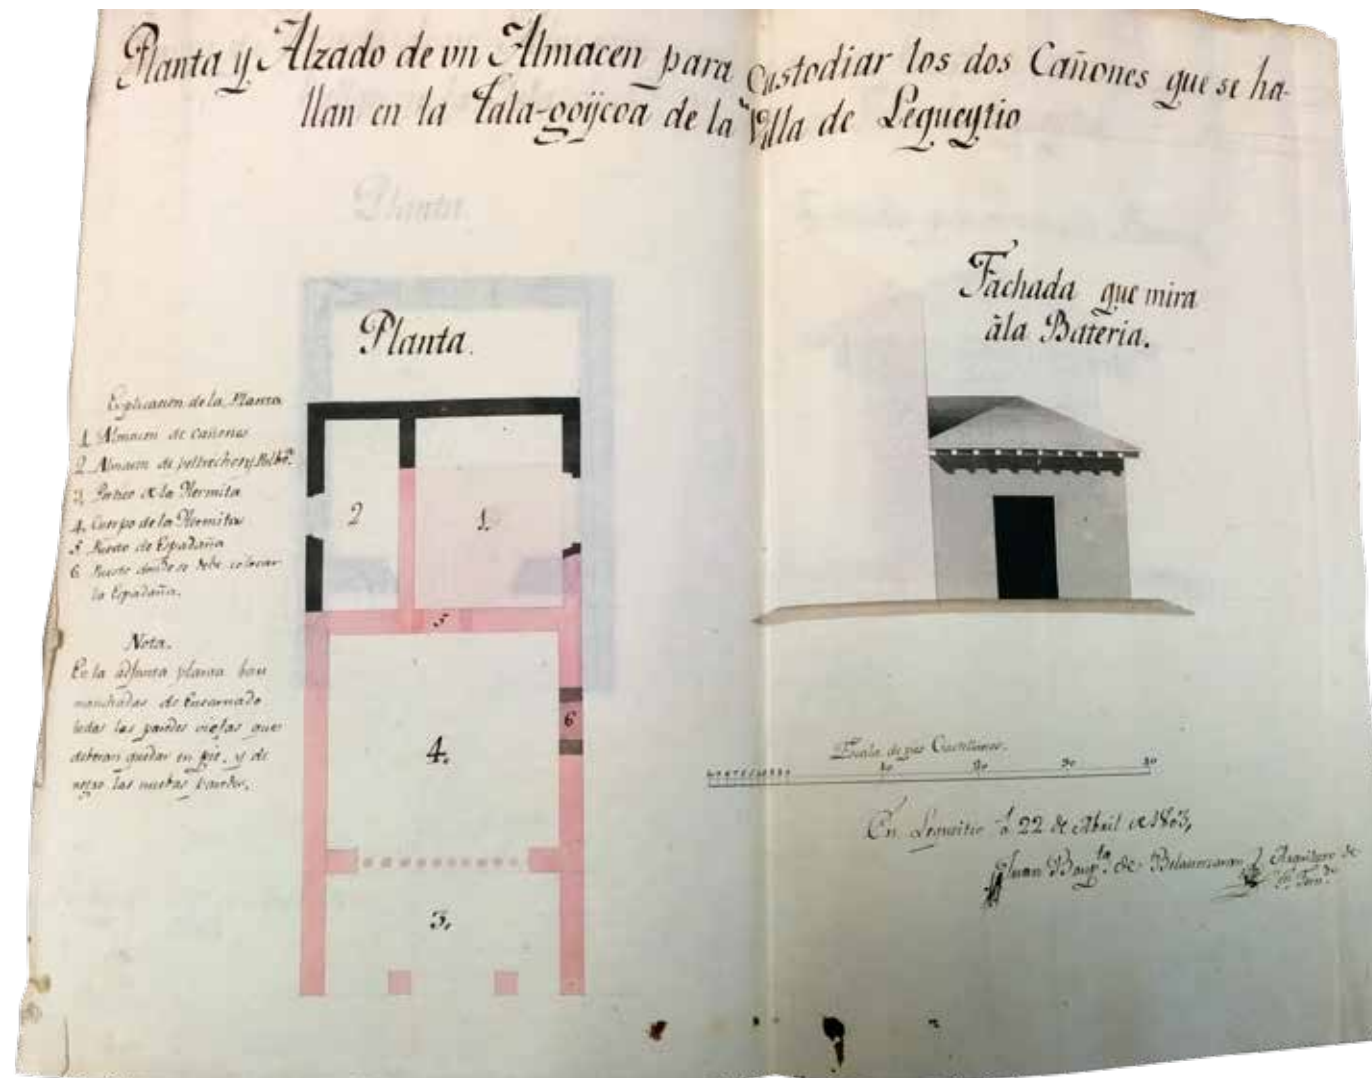 Planta y Alzado de vn Almacen para Custodiar los dos Cañones que se ha-
llan en la Tala-goijcoa de la Villa de Lequeytio
Planta.
Explicacion de la Planta
1 Almacen de Cañones
2 Almacen de peltrechos y Polbª
3 Portico de la Hermita
4. Cuerpo de la Hermita
5 Puesto de Espadaña
6 Puesto donde se debe colocar
la Espadaña.
Nota.
En la adjunta planta ban
manchadas de Encarnado
todas las paredes viejas que
deberan quedar en pie, y de
negro las nuebas paredes.
2
1.
5
4.
6
3.
Fachada que mira
àla Bateria.
Escala de pies Castellanos.
10 20 30 40
En Lequeitio á 22 de Abril de 1803,
Juan Baupta de Belaunzaran Arquitecto de
Sn Ferndo